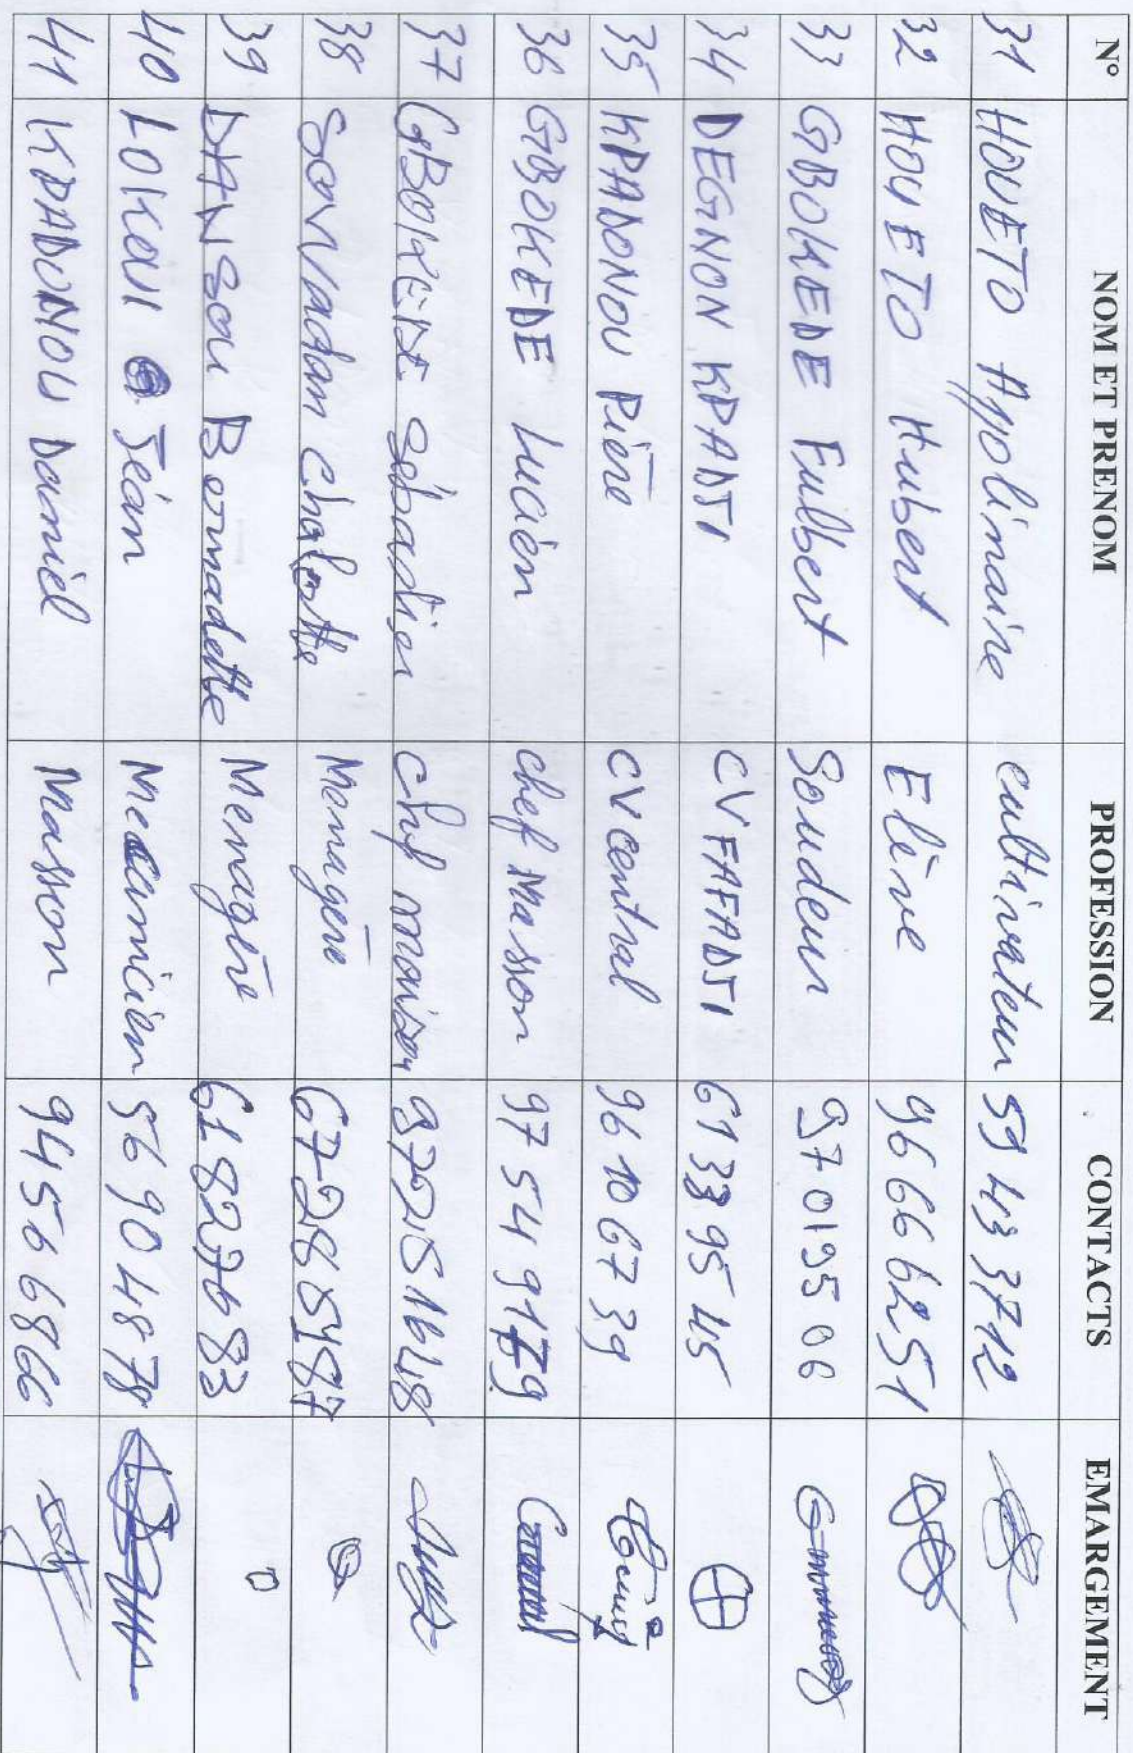 N° NOM ET PRENOM PROFESSION CONTACTS EMARGEMENT
31 HOUETO Appolinaire cultivateur 59 43 37 12
32 HOUETO Hubert Elève 96 66 62 51
33 GBOKEDE Fulbert Soudeur 97 01 95 06
34 DEGNON KPADJI CV FAFADJI 61 33 95 45
35 KPADONOU Pière CV central 96 10 67 39
36 GBOKEDE Lucien chef Masson 97 54 91 79
37 GBOKEDE Sébastien chef maison
38 Charlotte Menagère
39 DANSOU Bernadette Menagère 61 82 76 83
40 LOKOUI Jean Mecanicien 56 90 48 78
41 KPADONOU Daniel Masson 94 56 68 66